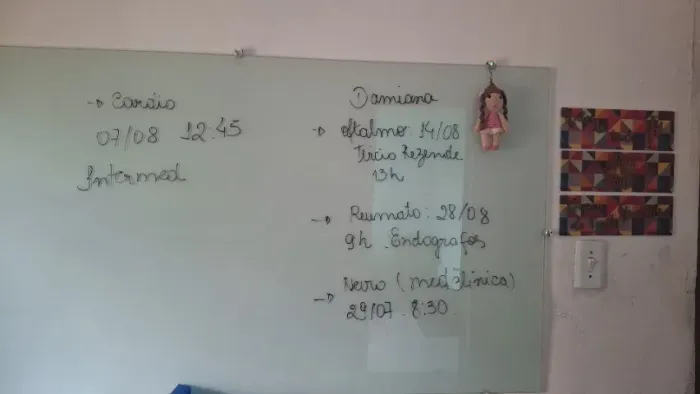 → Cardio
07/08 12:45
Intermed
Damiana
→ oftalmo: 14/08
Tércio Rezende
13h
→ Reumato: 28/08
9h. Endografos
→ Neuro (medclínica)
29/07. 8:30.